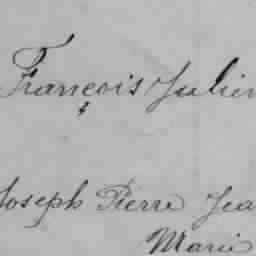 François Julien
Joseph Pierre Jea
Marie